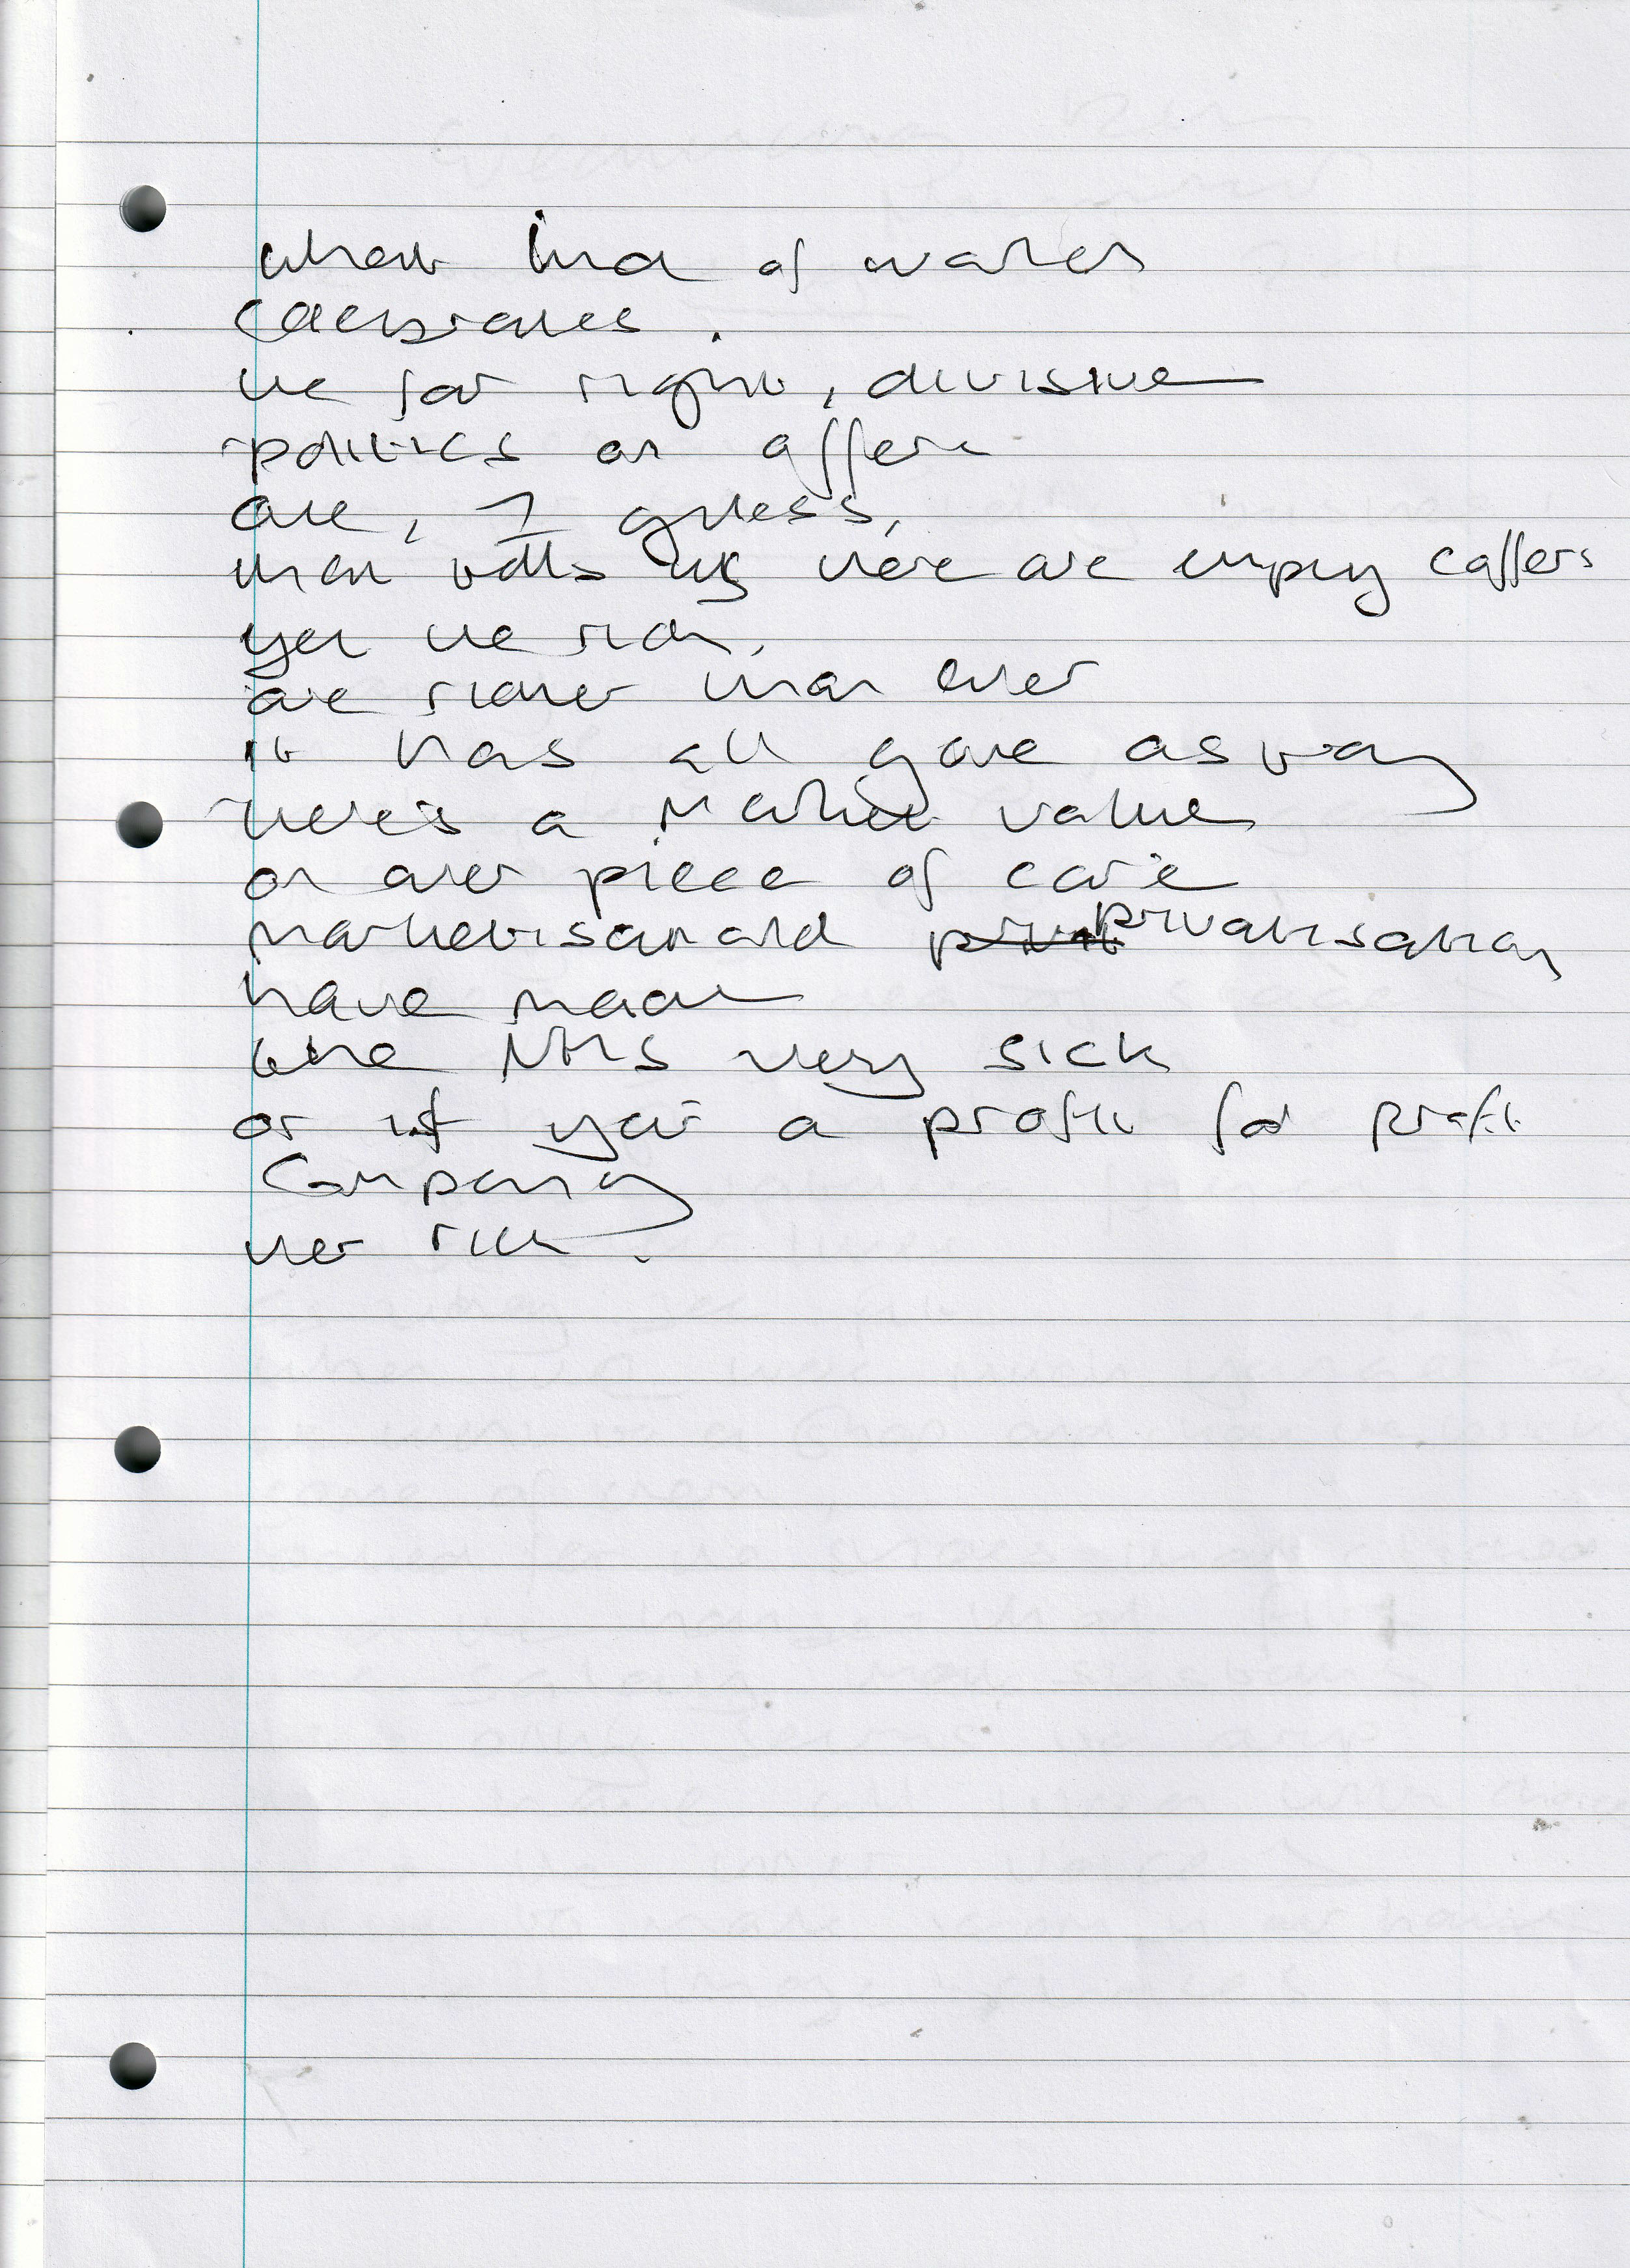 what kind of water
celebrates.
the far right, divisive
politics on offer
are, I guess,
man tells us there are empty coffers
yet the rich,
are richer than ever
it has all gone astray
there's a market value
on over piece of care
marketisation and privatisation
have made
the NHS very sick
or if your a profit for profit
Company
very rich.